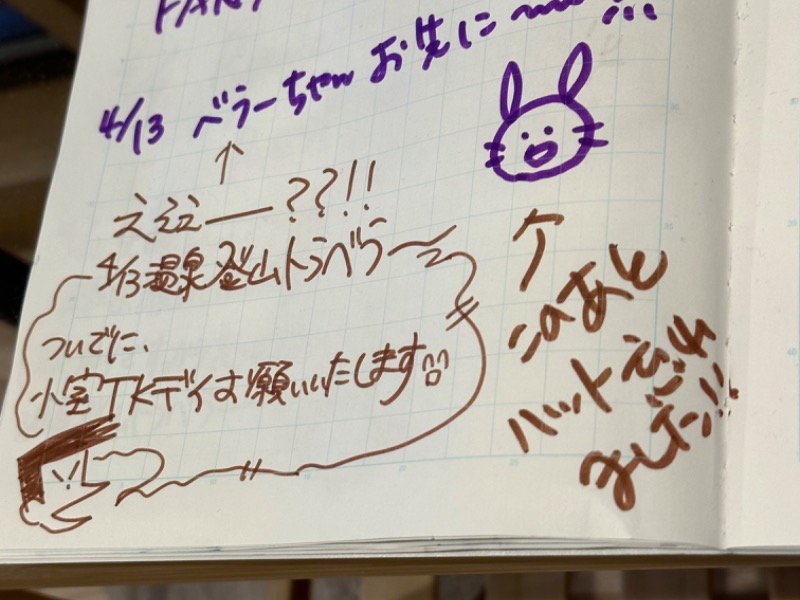 4/13 ベラーちゃん お先に〜 !!!
↑
ええェ——??!!
4/13 温泉登山トラベラ〜
ついでに、
小室TKデイはお願いいたします
↑
このあと
ハット
ました!!